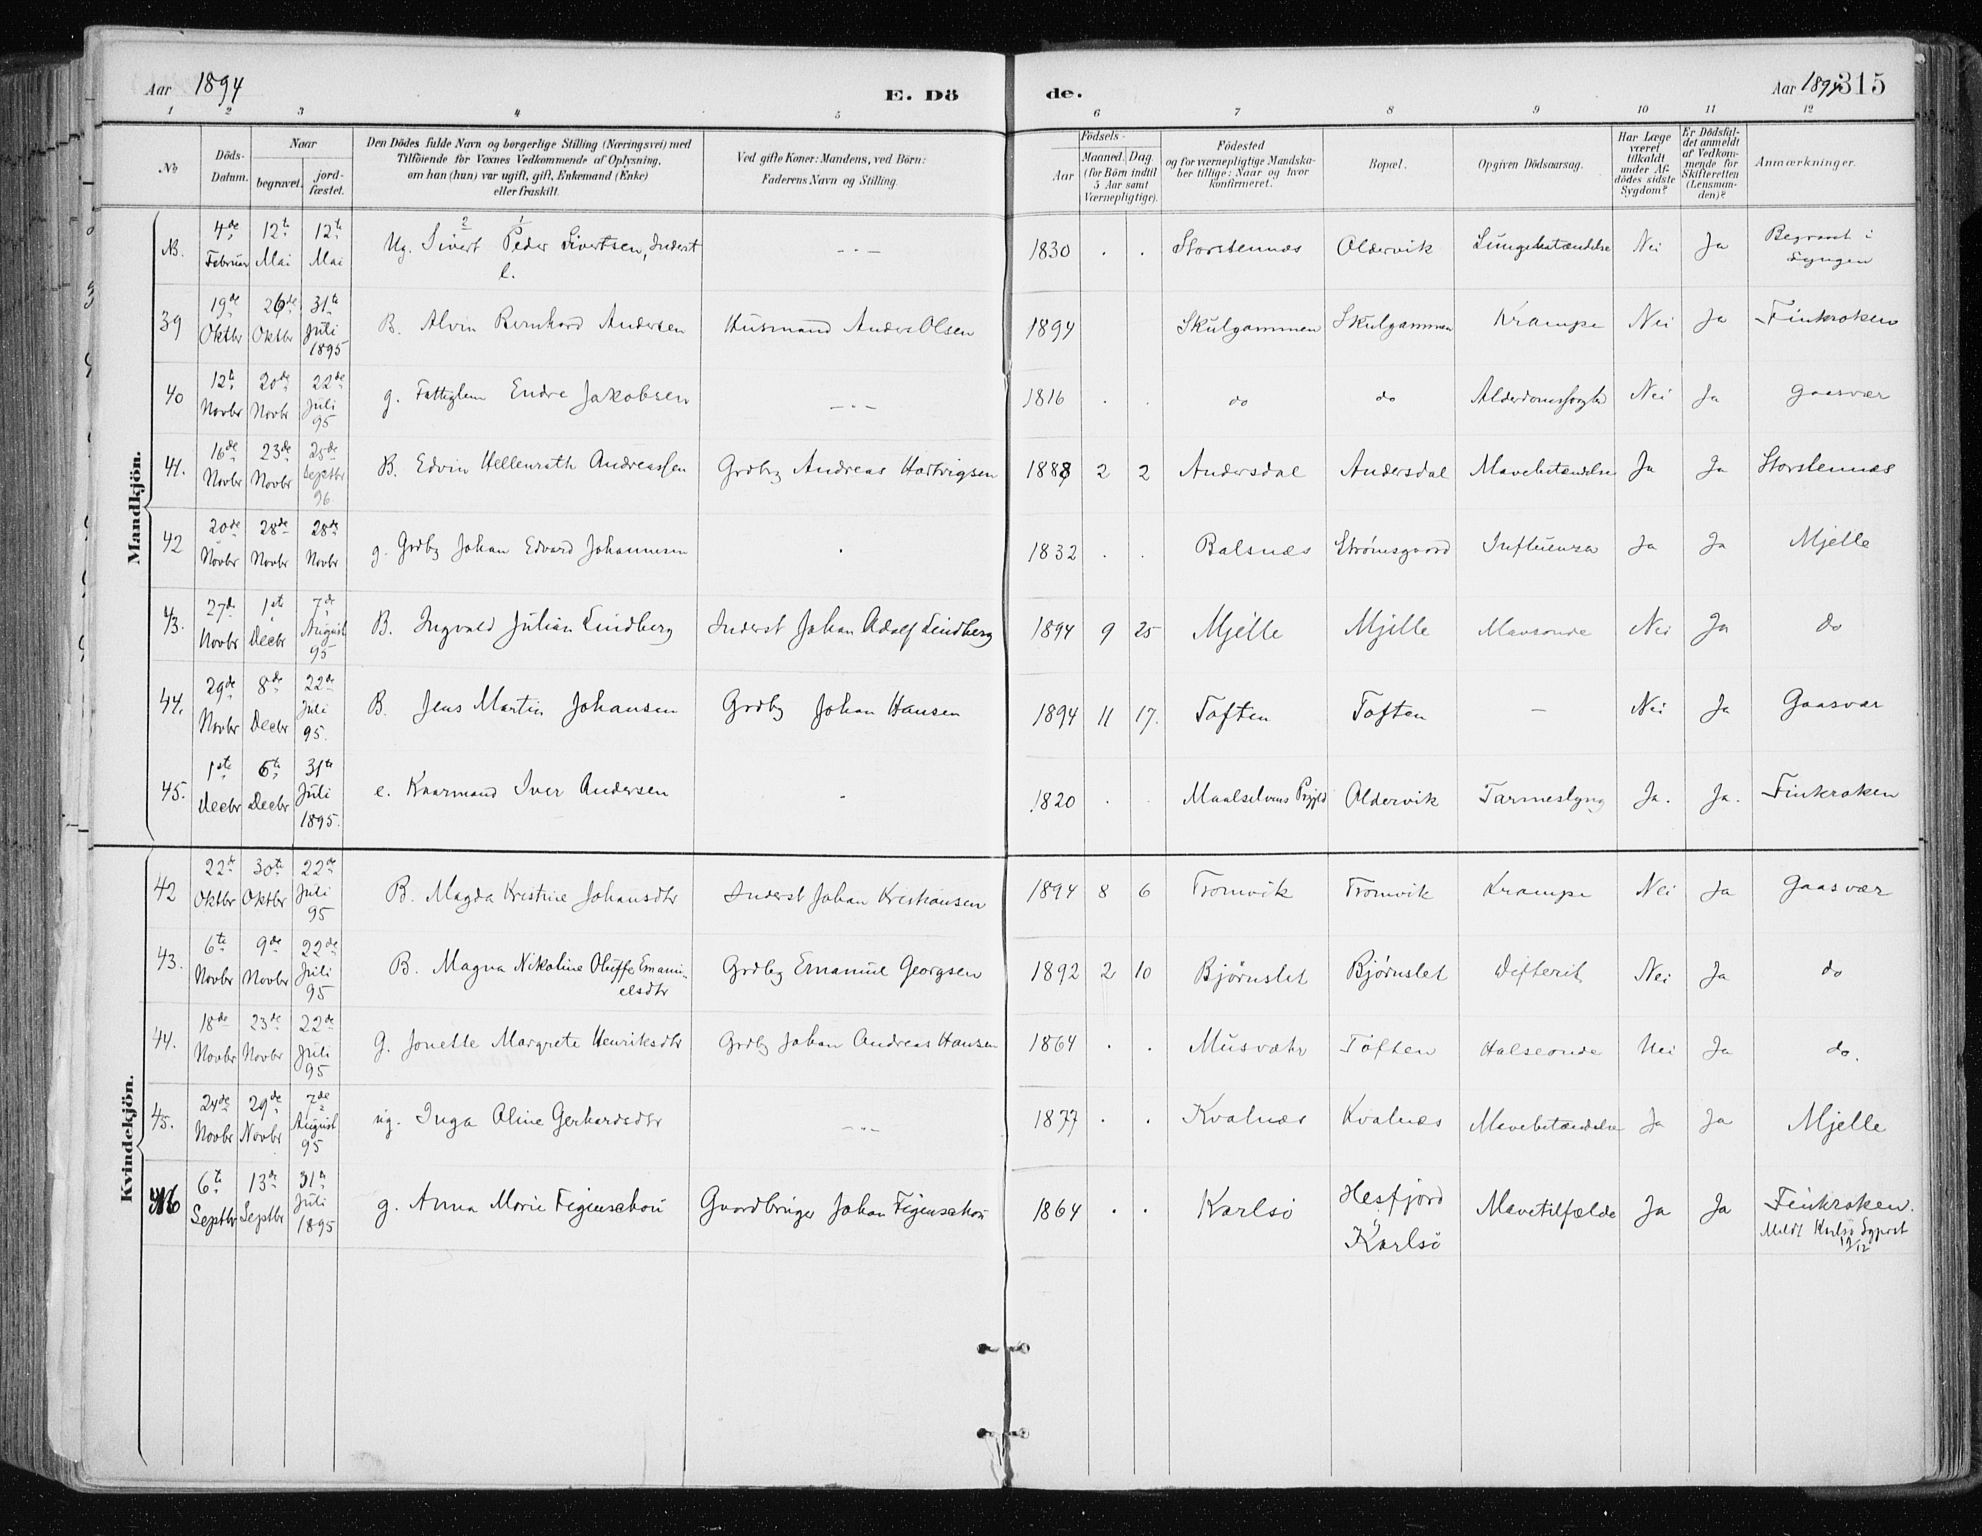 Aar 1894 E. Dö
de. Aar 1894 315
1 2 3 4 5 6 7 8 9 10 11 12
No
Döds-Datum.
Naar
begravet.
jord-fæstet.
Den Dödes fulde Navn og borgerlige Stilling (Næringsvei) med
Tilföiende for Voxnes Vedkommende af Oplysning,
om han (hun) var ugift, gift, Enkemand (Enke)
eller fraskilt.
Ved gifte Koner: Mandens, ved Börn:
Faderens Navn og Stilling.
Födsels-
Aar
Maaned. Dag
(for Börn indtil
5 Aar samt
Værnepligtige).
Födested
og for værnepligtige Mandska-
ber tillige: Naar og hvor
konfirmeret.
Bopæl.
Opgiven Dödsaarsag.
Har Læge
været
tilkaldt
under Af-
dödes sidste
Sygdom?
Er Dödsfal-
det anmeldt
af Vedkom-
mende for
Skifteretten
(Lensman-
den)?
Anmærkninger.
Mandkjön.
NB. 4de Februar 12te Mai 12te Mai Ug. Sivert 2 Peder 1 Sivertsen, Inderst l. -"- 1830 . . Storstennæs Oldervik Lungebetændelse Nei Ja Begravet i Lyngen
39 19de Oktbr 26de Oktbr 31te Juli 1895 B. Alvin Bernhard Andersen Husmand Anders Olsen 1894 Skulgammen Skulgammen Krampe Nei Ja Finkroken
40 12te Novbr 20de Novbr 22de Juli 95 g. Fattiglem Endre Jakobsen -"- 1816 . . do do Alderdomssvagh Nei Ja Gaasvær
41. 16de Novbr 23de Novbr 25de Septbr 96 B. Edvin Hellenrath Andreassen Grdbg Andreas Hartvigsen 1888 2 2 Andersdal Andersdal Mavebetændelse Ja Ja Storstennæs
42 20de Novbr 28de Novbr 28de Novbr g. Grdbg Johan Edvard Johannesen . 1832 . . Balsnæs Strömsgaard Influenza Ja Ja Mjelle
43. 27de Novbr 1ste Decbr 7de August 95 B. Ingvald Julian Lindberg Inderst Johan Adolf Lindberg 1894 9 25 Mjelle Mjelle Mavsonde Nei Ja do
44. 29de Novbr 8de Decbr 22de Juli 95. B. Jens Martin Johansen Grdbg Johan Hansen 1894 11 17. Toften Toften - Nei Ja Gaasvær
45. 1ste Decbr 6te Decbr 31te Juli 1895. e. Kaarmand Iver Andersen . 1820 . . Maalselvens Prgjld Oldervik Tarmeslyng Ja. Ja. Finkroken
Kvindekjön.
42 22de Oktbr 30te Oktbr 22de Juli 95 B. Magda Kristine Johansdtr Inderst Johan Kristiansen 1894 8 6 Tromvik Tromvik Krampe Nei Ja Gaasvær
43. 6te Novbr 9de Novbr 22de Juli 95 B. Magna Nikoline Oluffe Emanu-
elsdtr Grdbg Emanuel Georgsen 1892 2 10 Bjørnslet Bjørnslet Difterit Nei Ja do
44. 18de Novbr 23de Novbr 22de Juli 95 g. Jonette Margrete Henriksdtr Grdbg Johan Andreas Hansen 1864 . . Musvær Toften Halseonde Nei Ja do.
45. 24de Novbr 29de Novbr 7de August 95 ug. Inga Oline Gerhardsdtr -"- 1877 . . Kvalnæs Kvalnæs Mavebetændelse Ja Ja Mjelle
46 6te Septbr 13de Septbr 31te Juli 1895 g. Anna Marie Figenschou Gaardbruger Johan Figenschou 1864 . . Karlsö Hesfjord i Karlsö Mavetilfælde Ja Ja Finkroken.
Meldt Karlsö Sgprst 19/12